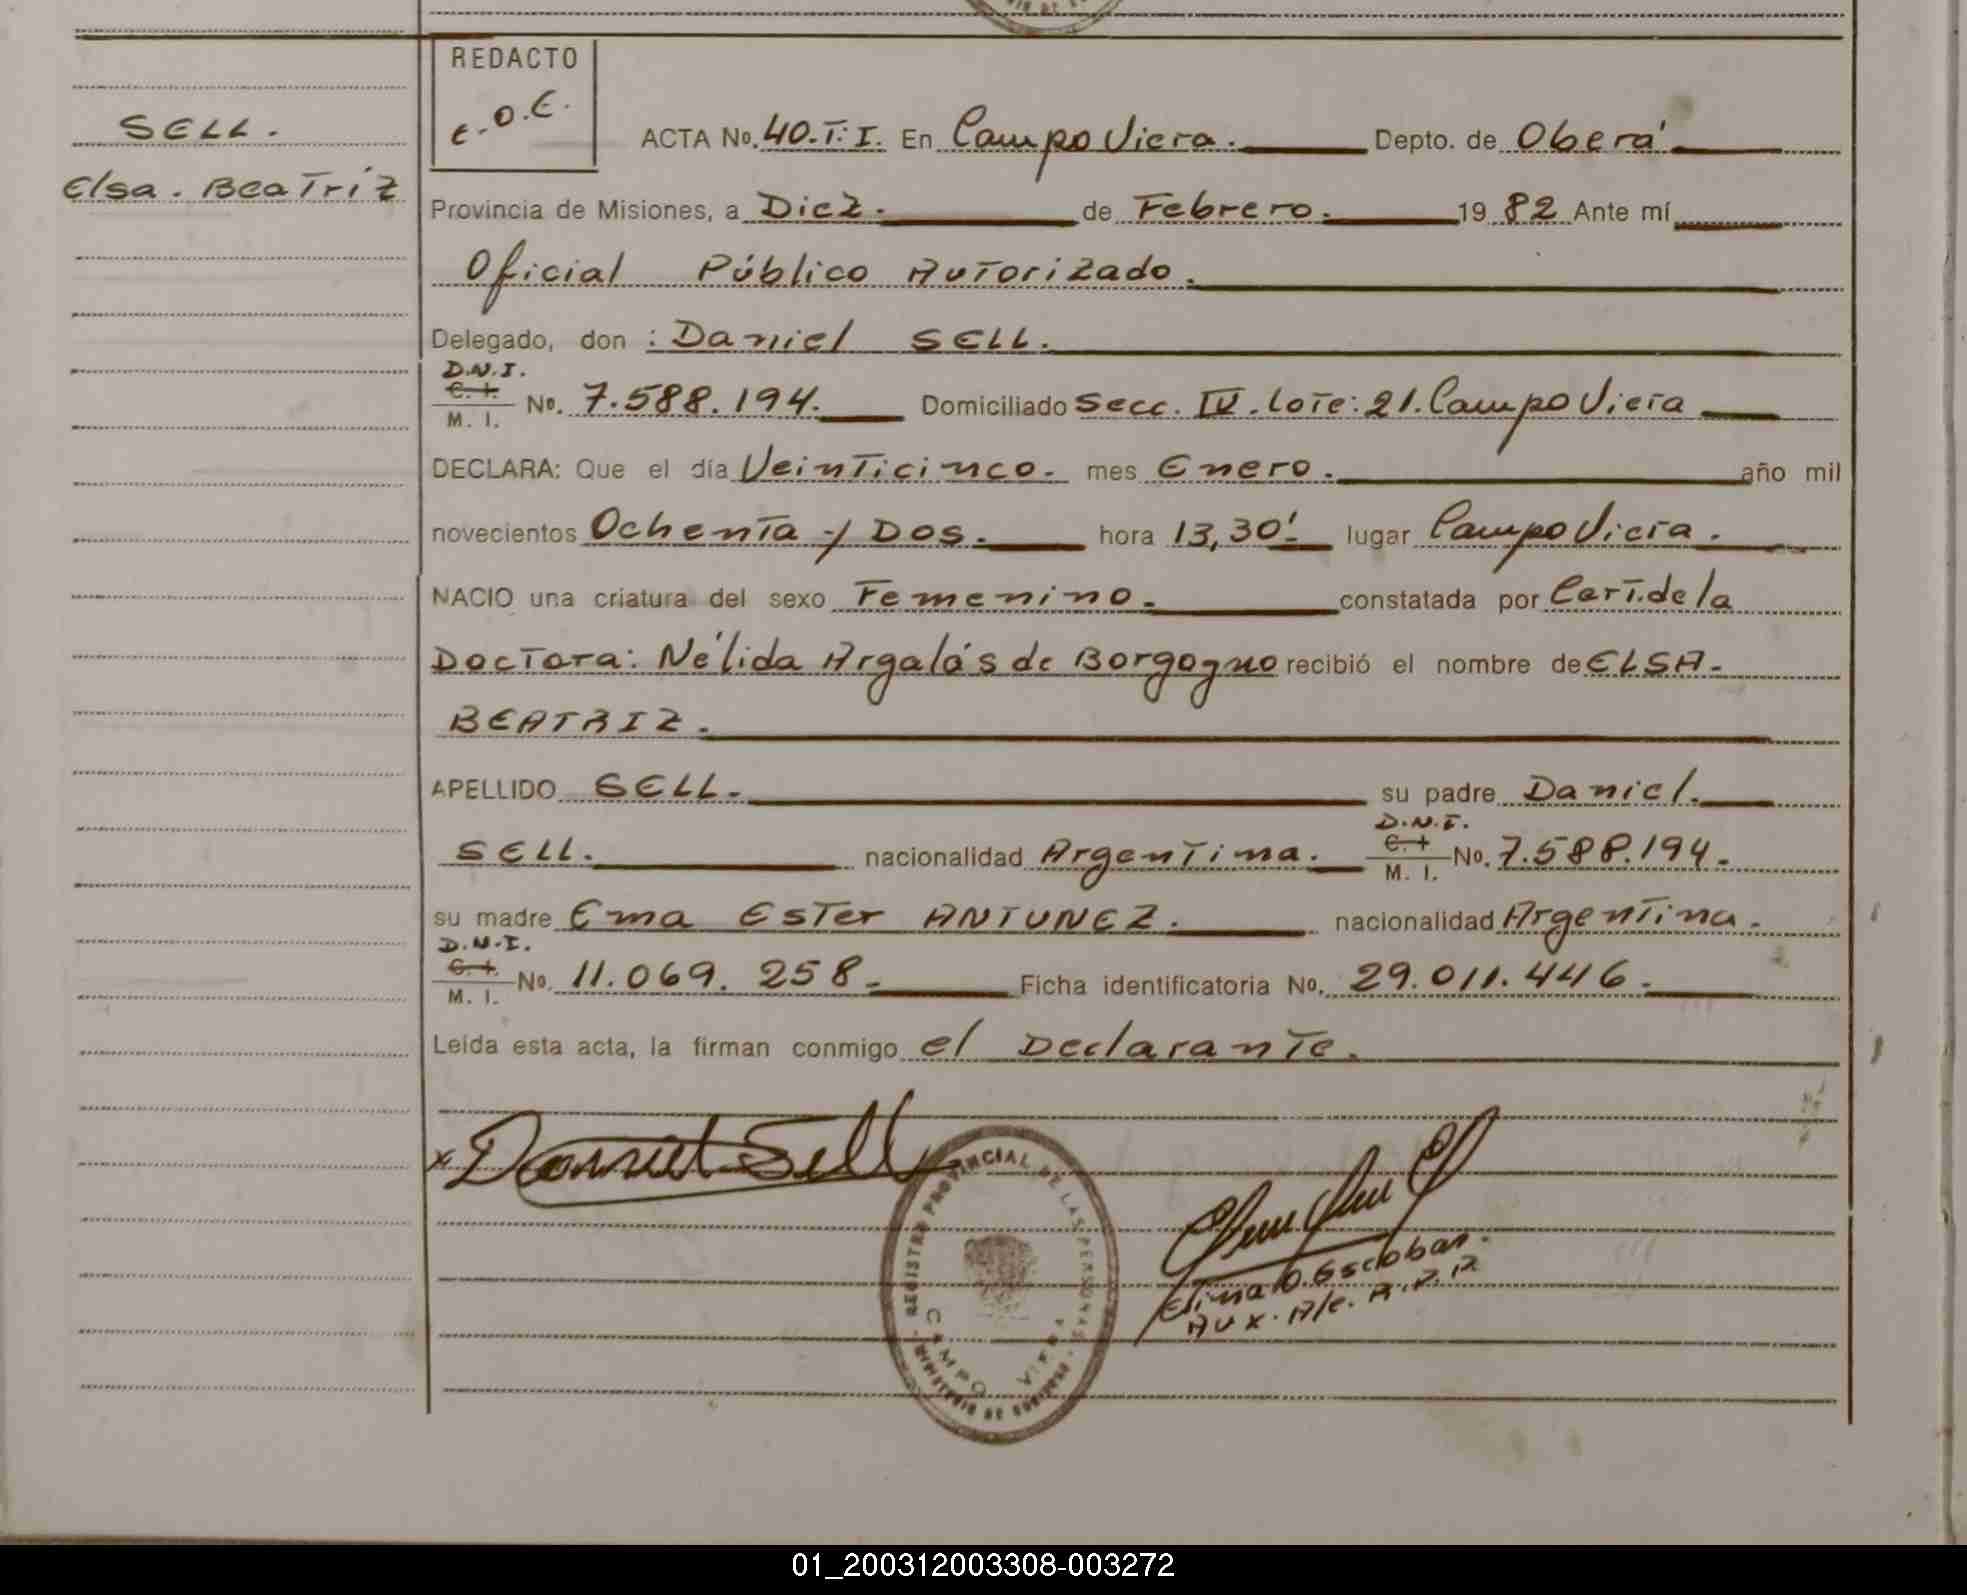 SELL.
Elsa. Beatriz
REDACTO
E.O.E.
ACTA No. 40.T:I. En Campo Viera. Depto. de Oberá
Provincia de Misiones, a Diez. de Febrero. 19 82 Ante mí
Oficial Público Autorizado.
Delegado, don : Daniel SELL.
D.N.I.
C. I.
M. I. No. 7.588.194. Domiciliado Secc. IV. Lote: 21. Campo Viera
DECLARA: Que el día Veinticinco. mes Enero. año mil
novecientos Ochenta y Dos. hora 13,30' lugar Campo Viera.
NACIO una criatura del sexo Femenino. constatada por Cert. de la
Doctora: Nélida Argalás de Borgogno recibió el nombre de ELSA-
BEATRIZ.
APELLIDO SELL. su padre Daniel.
SELL. nacionalidad Argentina. D.N.I. C. I. M. I. No. 7.588.194.
su madre Ema Ester ANTUNEZ. nacionalidad Argentina.
D.N.I.
C. I.
M. I. No. 11.069.258. Ficha identificatoria No. 29.011.446.
Leída esta acta, la firman conmigo el Declarante.
x Daniel Sell
REGISTRO PROVINCIAL DE LAS PERSONAS
CAMPO VIERA
MINISTERIO DE GOBIERNO
Elina O. Escobar.
Aux. A/c. R.P.P.
01_200312003308-003272